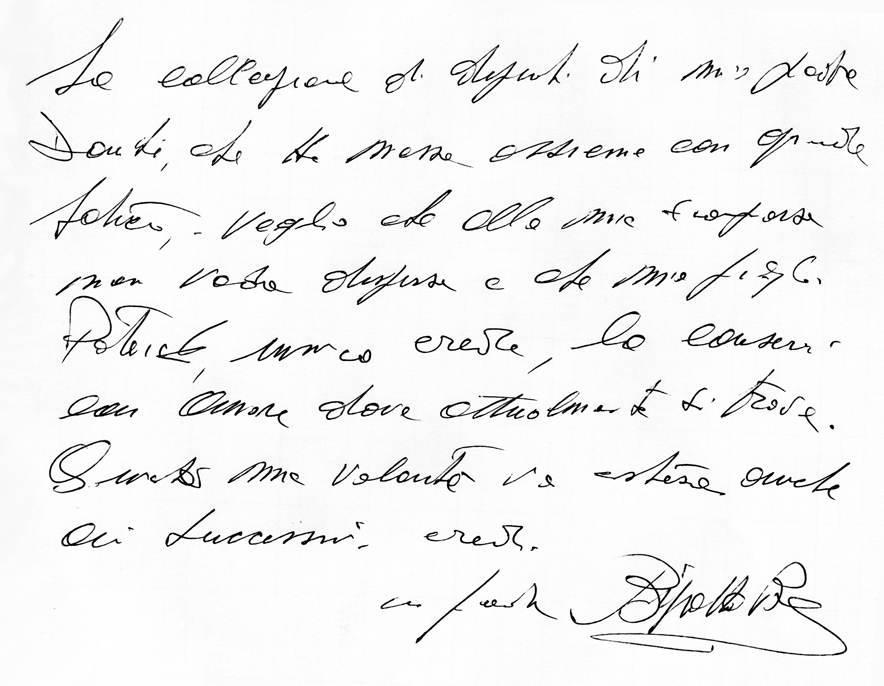 La collezione di dipinti di mio padre
Danti, che ha messa assieme con grande
fatica, voglio che alla mia scomparsa
non vada dispersa e che mio figlio
Patrick, unico erede, la conservi
con amore dove attualmente si trova.
Questa mia volontà va estesa anche
ai successivi eredi.
in fede